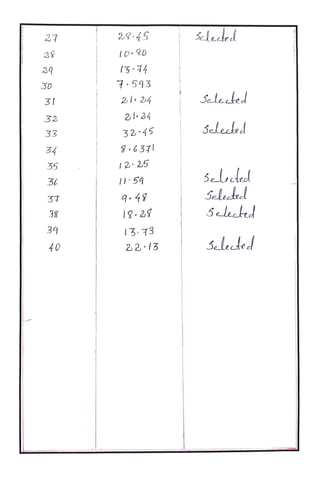 27 28.45 Selected
28 10.80
29 13.74
30 7.593
31 21.24 Selected
32 21.24
33 32.45 Selected
34 8.6371
35 12.25
36 11.59 Selected
37 9.48 Selected
38 18.28 Selected
39 13.73
40 22.13 Selected